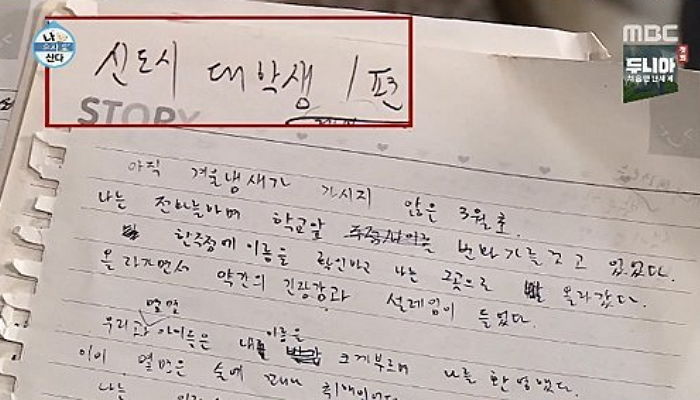 나 혼자 산다
MBC
두니아
처음 만난 세계
신도시 대학생 1편
STORY
아직 겨울냄새가 가시지 않은 3월초.
나는 전화를하며 학교앞 번화가를 걷고 있었다.
한주점에 이름을 확인하고 나는 곳으로 올라갔다.
올라가면서 약간의 긴장감과 설레임이 들었다.
몇몇
우리과 아이들은 내 이름을 크게부르며 나를 환영했다.
이미 몇명은 술에 꽤나 취해있었다.
나는